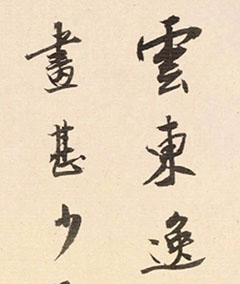 雲東逸
畫甚少